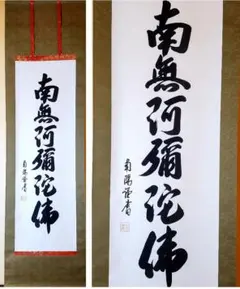 南無阿彌陀佛
南陽謹書
南無阿彌陀佛
南陽謹書